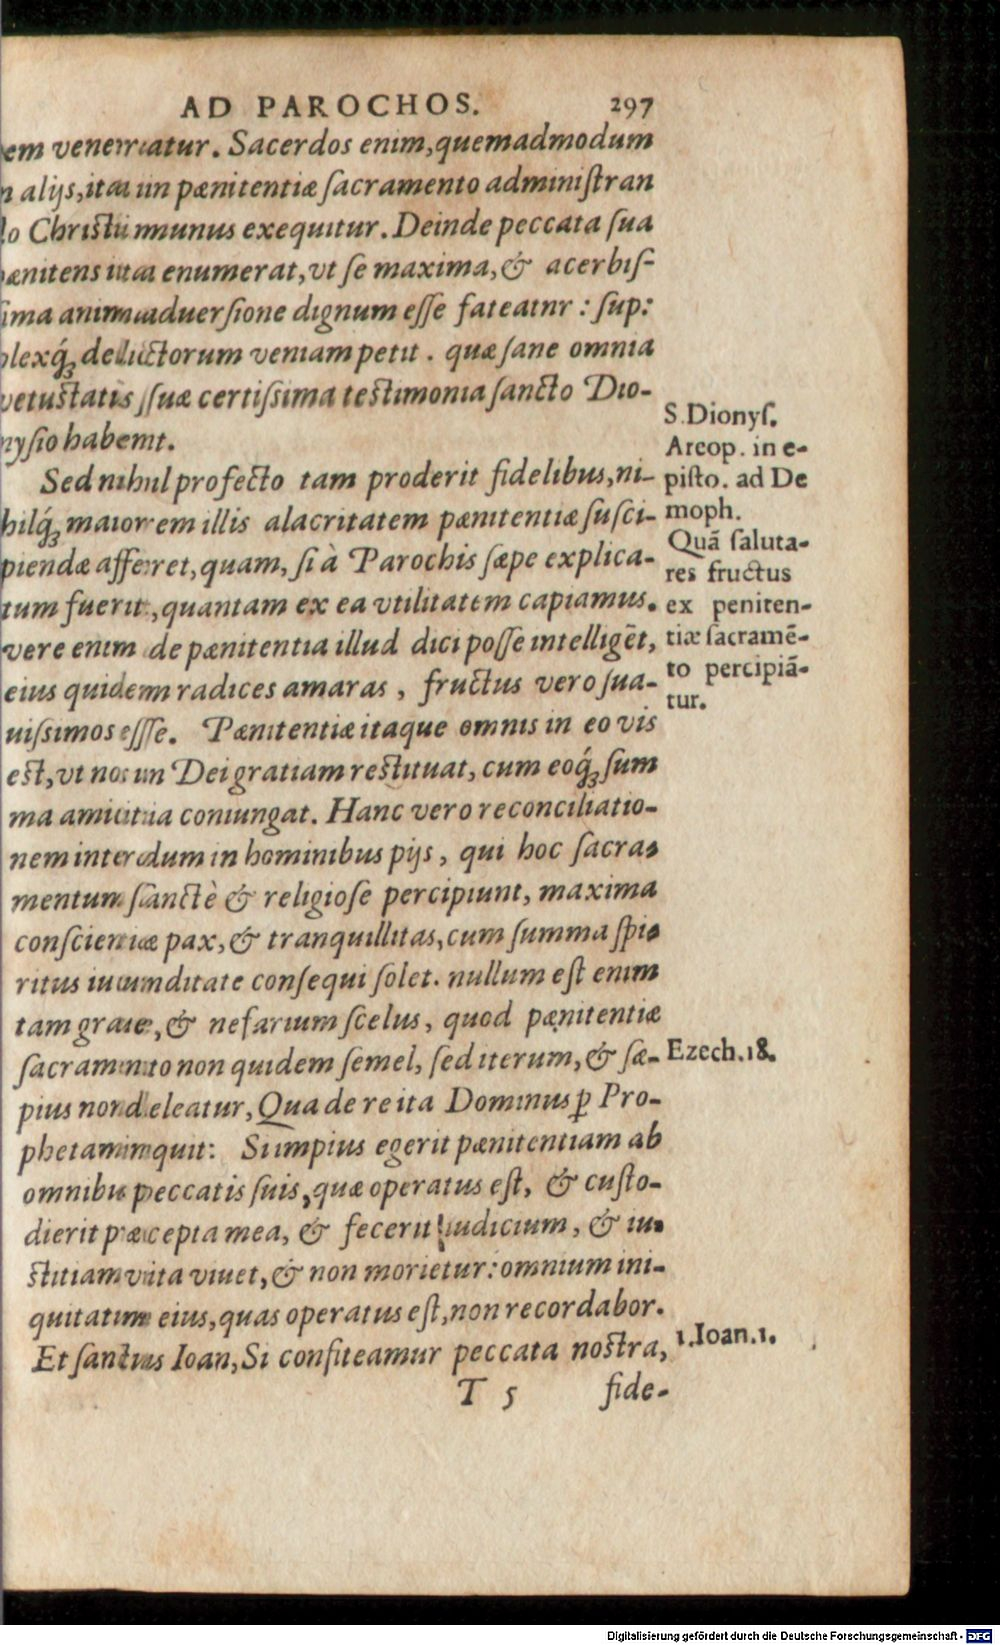 AD PAROCHOS. 297
em veneratur. Sacerdos enim, quemadmodum
alijs, ita in pænitentiæ ſacramento adminiſtran
Chriſti munus exequitur. Deinde peccata ſua
ænitens ita enumerat, vt ſe maxima, & acerbiſ-
ima animaduerſione dignum eſſe fateatnr : ſup:
lexq́ꝫ delictorum veniam petit . quæ ſane omnia
vetuſtatis ſuæ certiſſima teſtimonia ſancto Dio-
nyſio habemt.
Sed nihil profecto tam proderit fidelibus, ni-
hilq́ꝫ maiorem illis alacritatem pænitentiæ ſuſci-
piendæ afferret, quam, ſi à Parochis ſæpe explica-
tum fuerit, quantam ex ea vtilitatem capiamus.
vere enim de pænitentia illud dici poſſe intelligēt,
eius quidem radices amaras , fructus vero ſua-
uiſsimos eſſe. Pænitentiæ itaque omnis in eo vis
eſt, vt nos in Dei gratiam reſtituat, cum eoq́ꝫ ſum
ma amicitia coniungat. Hanc vero reconciliatio-
nem interdum in hominibus pijs , qui hoc ſacra-
mentum ſanctè & religioſe percipiunt, maxima
conſcientiæ pax, & tranquillitas, cum ſumma ſpi-
ritus iucunditate conſequi ſolet. nullum eſt enim
tam graue, & nefarium ſcelus, quod pænitentiæ
ſacramento non quidem ſemel, ſed iterum, & ſæ-
pius non deleatur, Qua de re ita Dominus ꝑ Pro-
phetam inquit: Si impius egerit pænitentiam ab
omnibus peccatis ſuis, quæ operatus eſt, & cuſto-
dierit præcepta mea, & fecerit iudicium, & iu-
ſtitiam vita viuet, & non morietur: omnium ini-
quitatum eius, quas operatus eſt, non recordabor.
Et ſanctus Ioan, Si confiteamur peccata noſtra,
T 5 fide-
S. Dionyſ.
Areop. in e-
piſto. ad De
moph.
Quā ſaluta-
res fructus
ex peniten-
tiæ ſacramē-
to percipiā-
tur.
Ezech. 18.
1. Ioan. 1.
Digitalisierung gefördert durch die Deutsche Forschungsgemeinschaft - DFG